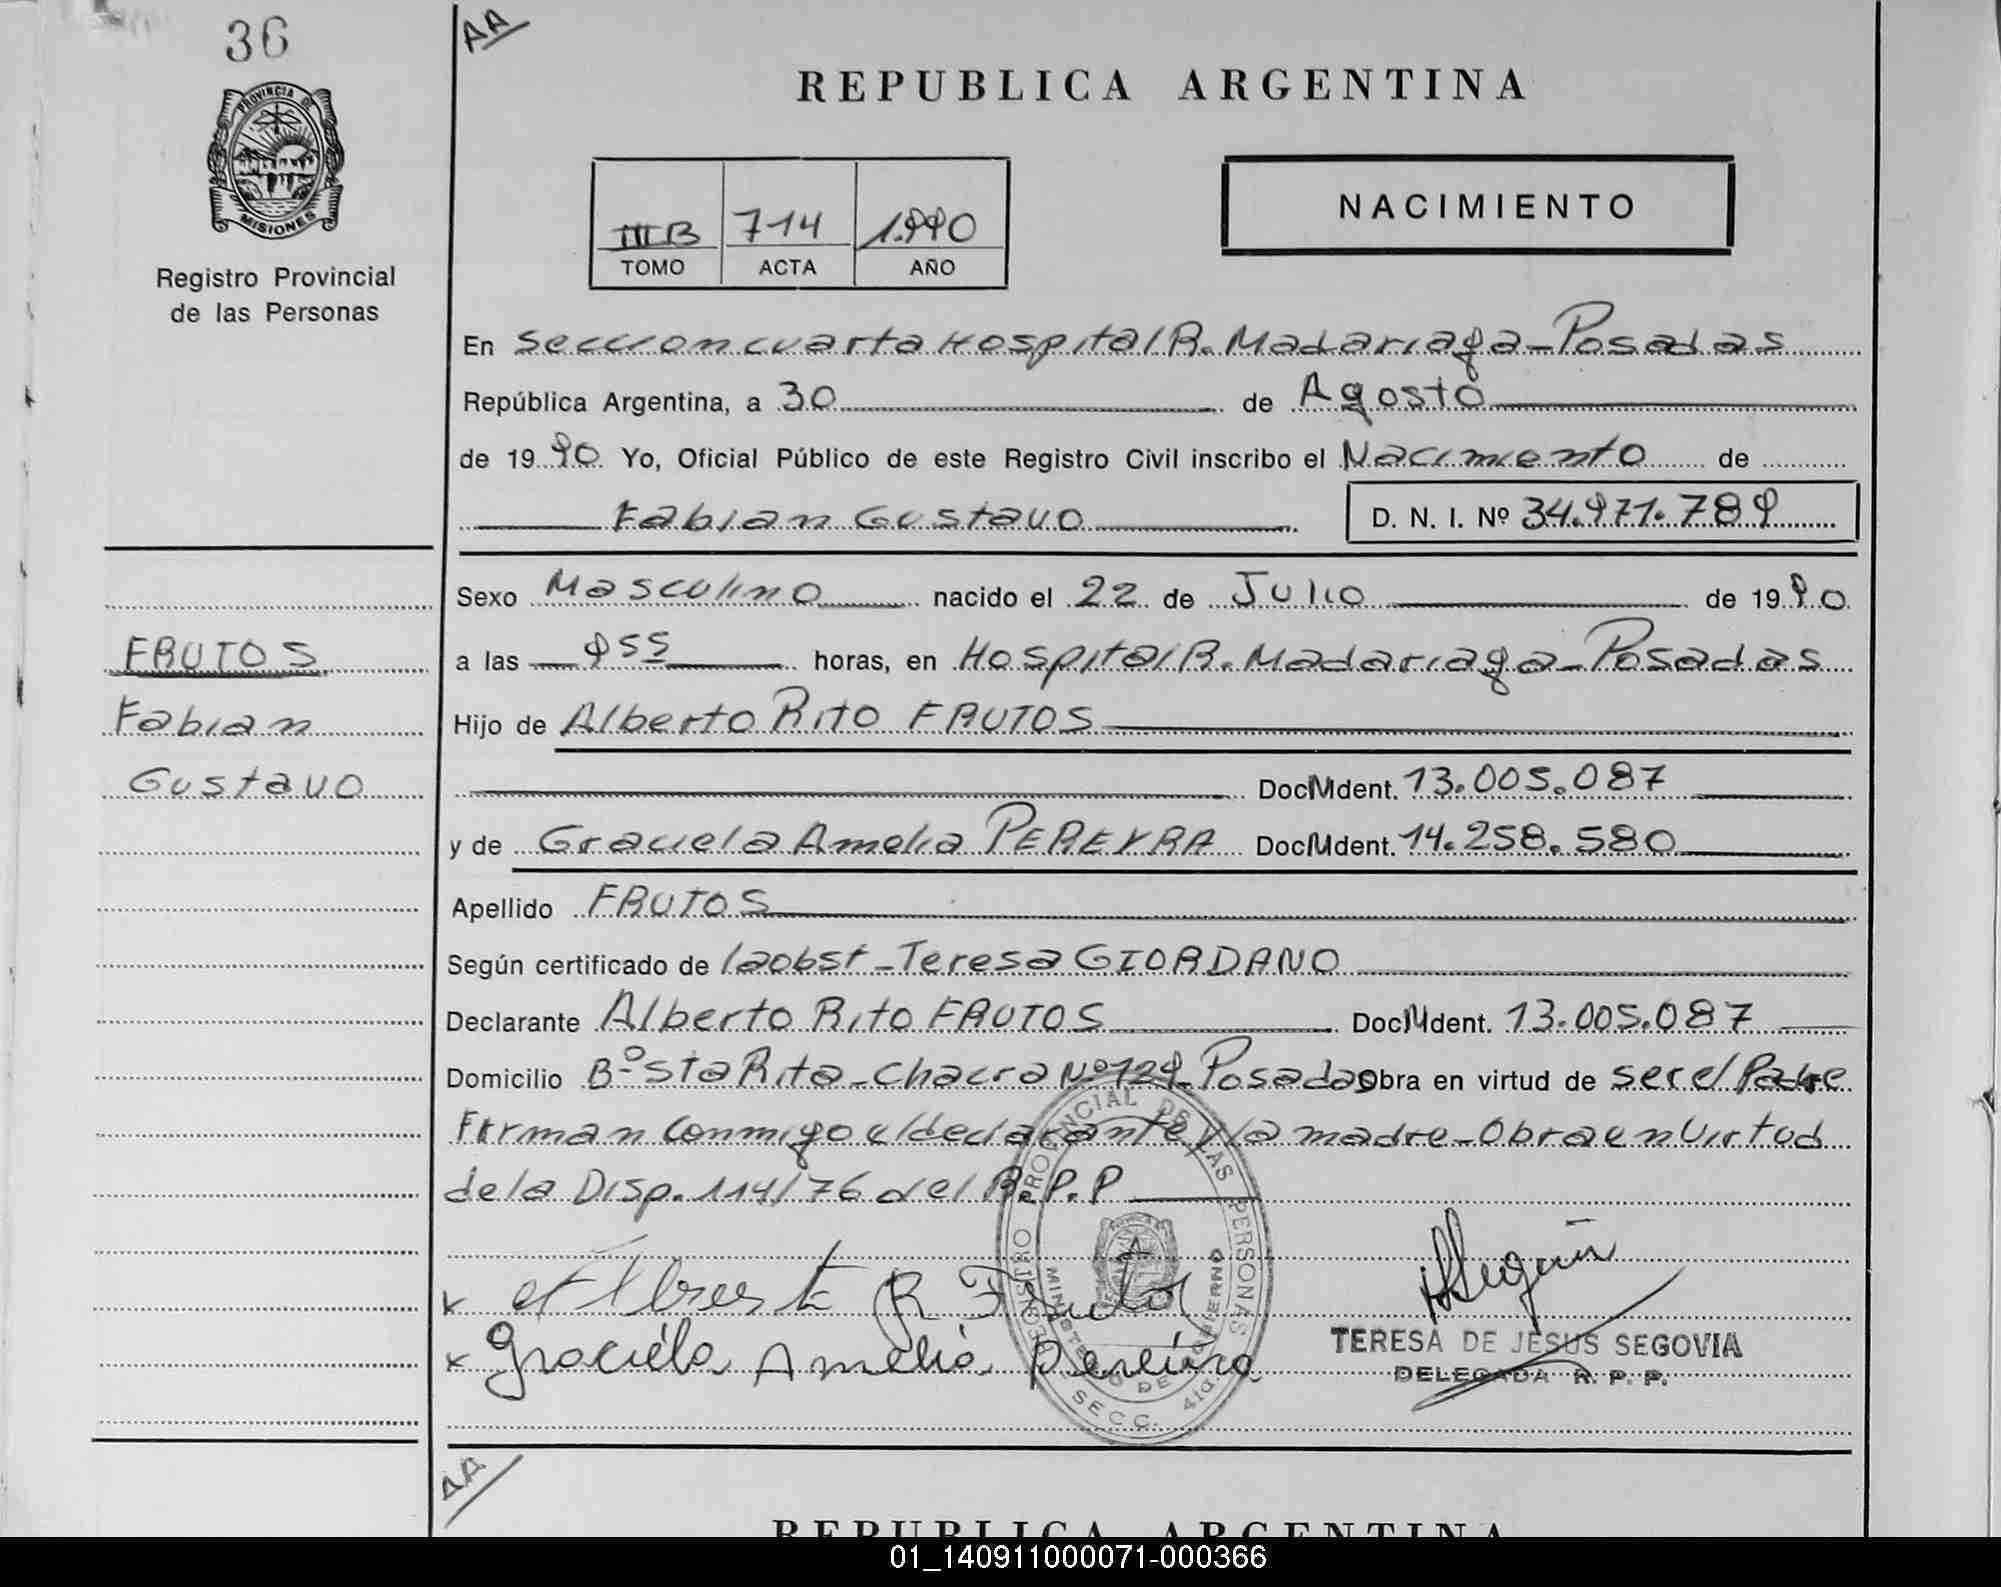 36
AA
REPUBLICA ARGENTINA
PROVINCIA DE
MISIONES
Registro Provincial
de las Personas
III B 714 1.990
TOMO ACTA AÑO
NACIMIENTO
En Seccion cuarta Hospital R. Madariaga - Posadas
República Argentina, a 30 de Agosto
de 1990 Yo, Oficial Público de este Registro Civil inscribo el Nacimiento de
Fabian Gustavo D. N. I. Nº 34.971.789
Sexo Masculino nacido el 22 de Julio de 1990
FRUTOS
a las 955 horas, en Hospital R. Madariaga - Posadas
Fabian
Hijo de Alberto Rito FRUTOS
Gustavo
Doc M Ident. 13.005.087
y de Graciela Amelia PEREYRA Doc M Ident. 14.258.580
Apellido FRUTOS
Según certificado de la obst - Teresa GIORDANO
Declarante Alberto Rito FRUTOS Doc M Ident. 13.005.087
Domicilio Bº Sta Rita - Chacra Nº 129 - Posadas Obra en virtud de ser el Padre
Firman conmigo el declarante y la madre - Obra en Virtud
de la Disp. 114/76 del R.P.P
x Alberto R Frutos
x Graciéla Amelia Pereira
REGISTRO PROVINCIAL DE LAS PERSONAS
MINISTERIO DE GOBIERNO
SECC. 4ta.
TERESA DE JESUS SEGOVIA
DELEGADA R. P. P.
AA
REPUBLICA ARGENTINA
01_140911000071-000366